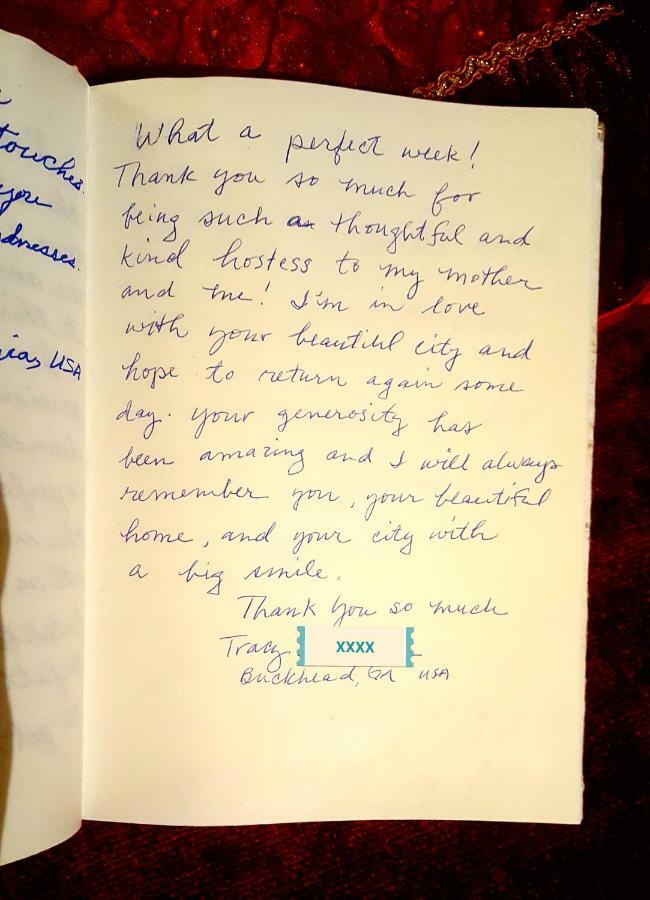 touches.
you
USA
What a perfect week!
Thank you so much for
being such a thoughtful and
kind hostess to my mother
and me! I'm in love
with your beautiful city and
hope to return again some
day. Your generosity has
been amazing and I will always
remember you, your beautiful
home, and your city with
a big smile.
Thank You so much
Tracy
XXXX
Buckhead, GA USA